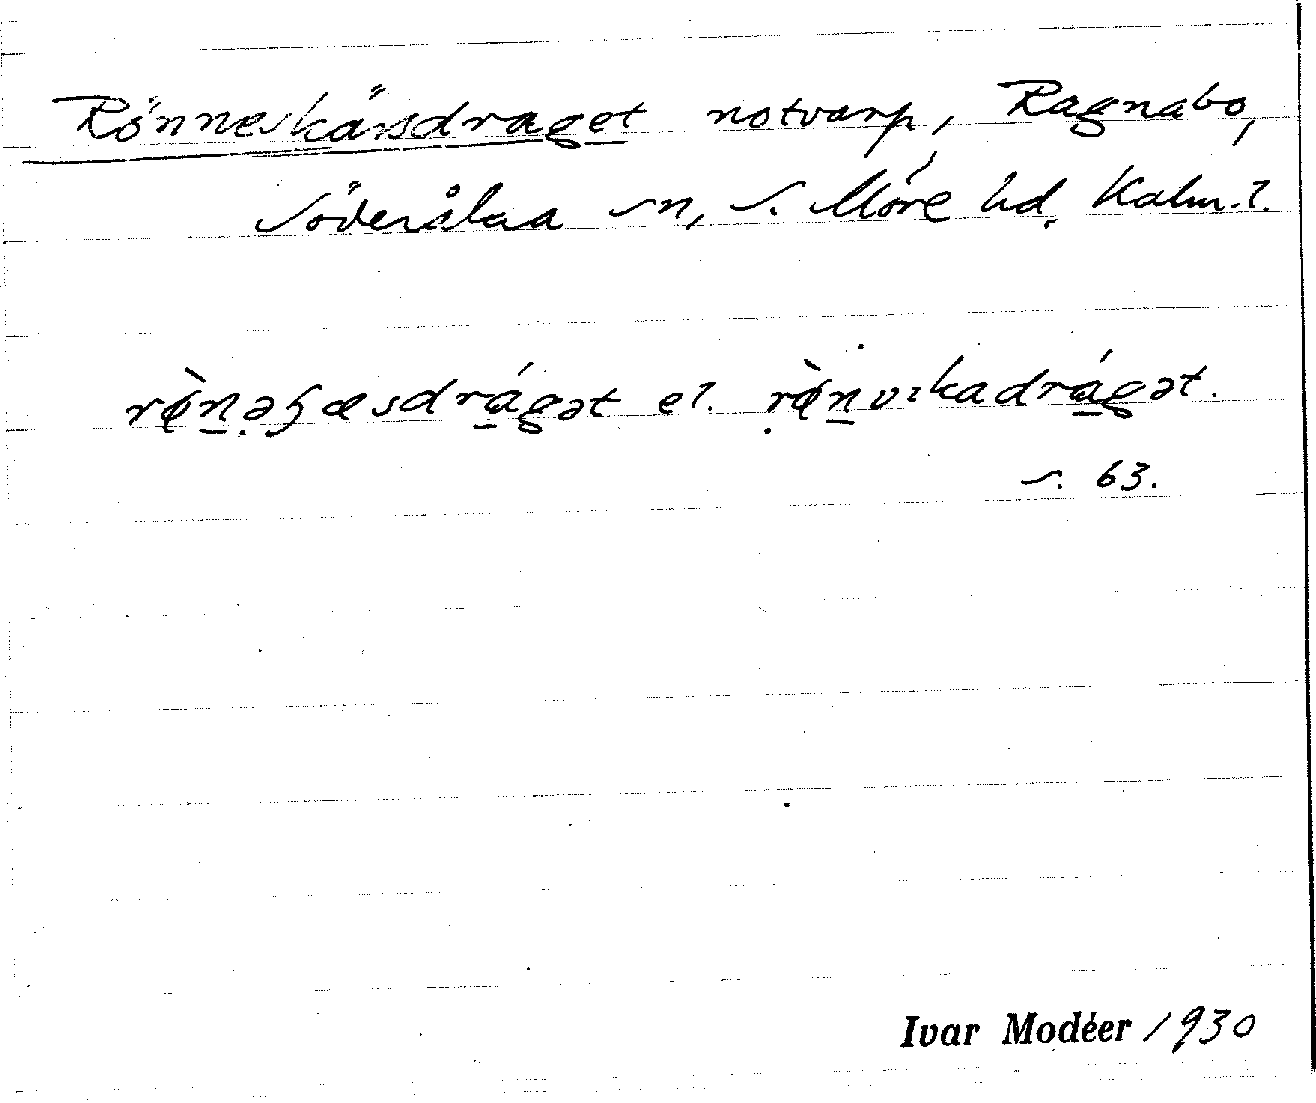 Rönneskärsdraget notvarp, Ragnabo,
Söderåkra sn, S. Möre hd, Kalm. l.
rø̀nəʂæsdrágət el. rø̀nvikadrágət.
s. 63.
Ivar Modéer 1930